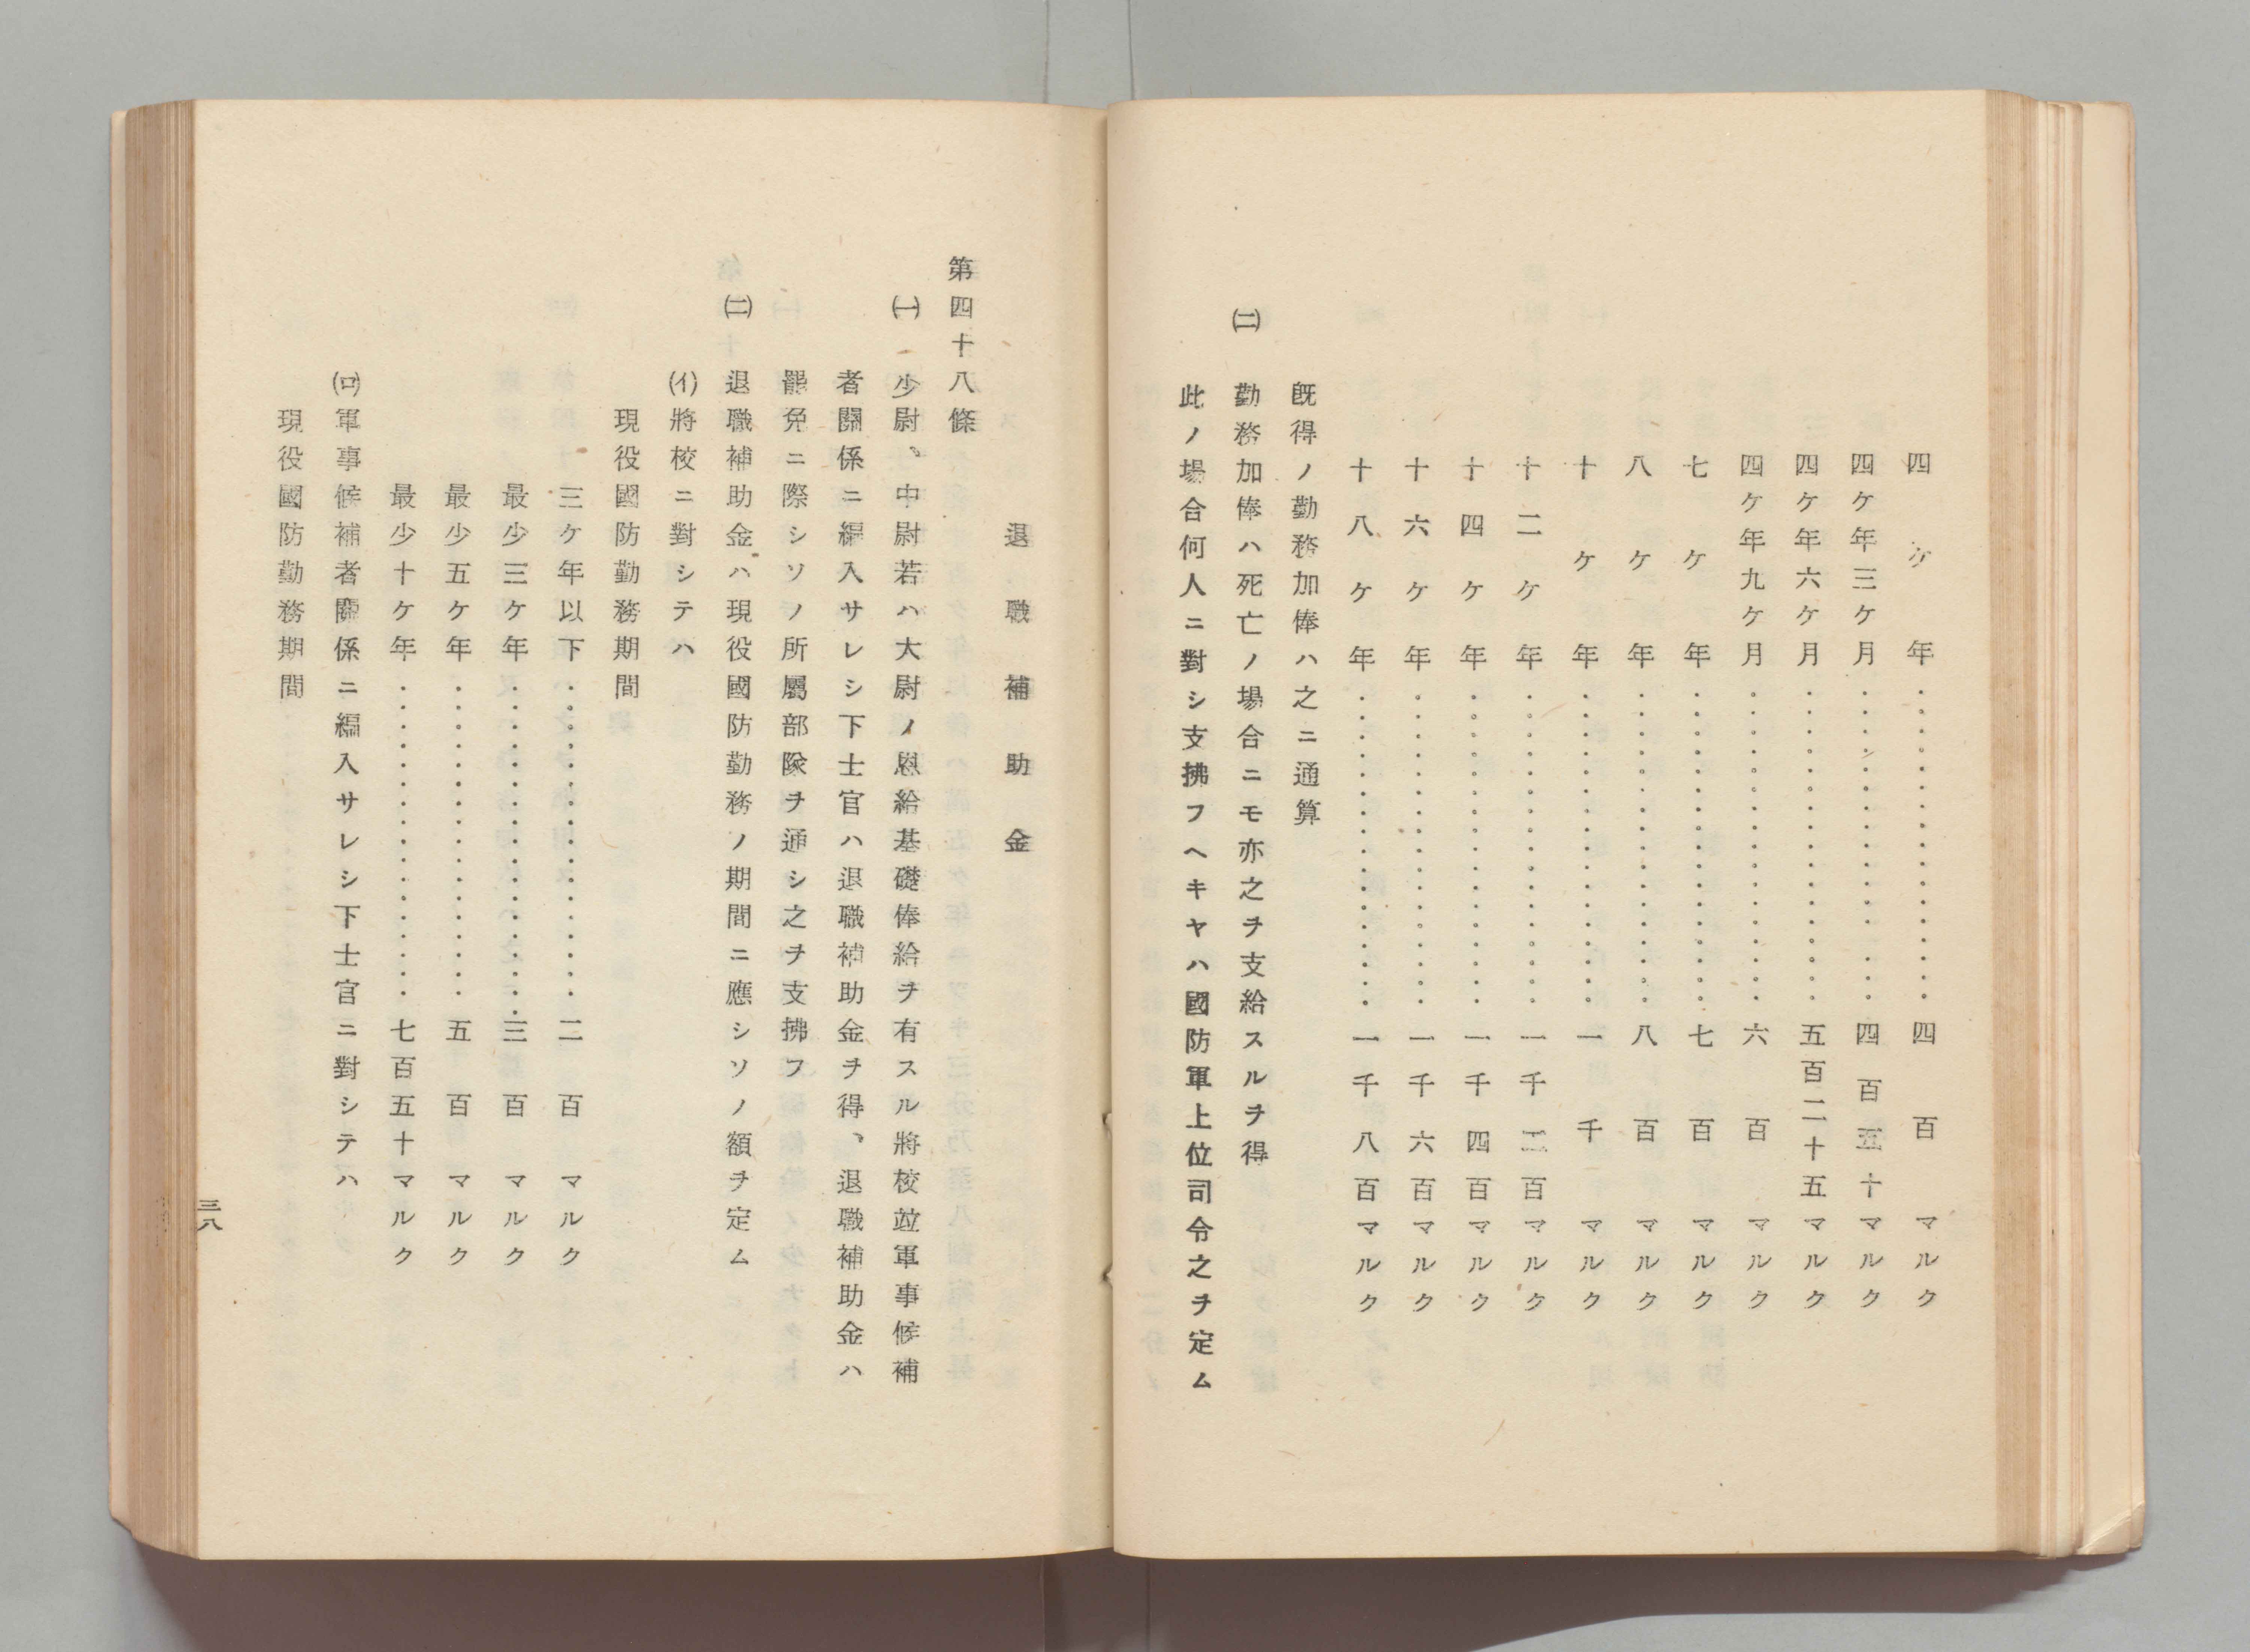 四ケ年……………四百マルク
四ケ年三ケ月……………四百五十マルク
四ケ年六ケ月……………五百二十五マルク
四ケ年九ケ月……………六百マルク
七ケ年……………七百マルク
八ケ年……………八百マルク
十ケ年……………一千マルク
十二ケ年……………一千二百マルク
十四ケ年……………一千四百マルク
十六ケ年……………一千六百マルク
十八ケ年……………一千八百マルク
既得ノ勤務加俸ハ之ニ通算
㈡ 勤務加俸ハ死亡ノ場合ニモ亦之ヲ支給スルヲ得
此ノ場合何人ニ對シ支拂フヘキヤハ國防軍上位司令之ヲ定ム
退職補助金
第四十八條
㈠ 少尉、中尉若ハ大尉ノ恩給基礎俸給ヲ有スル將校竝軍事候補
者關係ニ編入サレシ下士官ハ退職補助金ヲ得、退職補助金ハ
罷免ニ際シソノ所屬部隊ヲ通シ之ヲ支拂フ
㈡ 退職補助金ハ現役國防勤務ノ期間ニ應シソノ額ヲ定ム
(イ)將校ニ對シテハ
現役國防勤務期間
三ケ年以下……………二百マルク
最少三ケ年……………三百マルク
最少五ケ年……………五百マルク
最少十ケ年……………七百五十マルク
(ロ)軍事候補者關係ニ編入サレシ下士官ニ對シテハ
現役國防勤務期間
三八